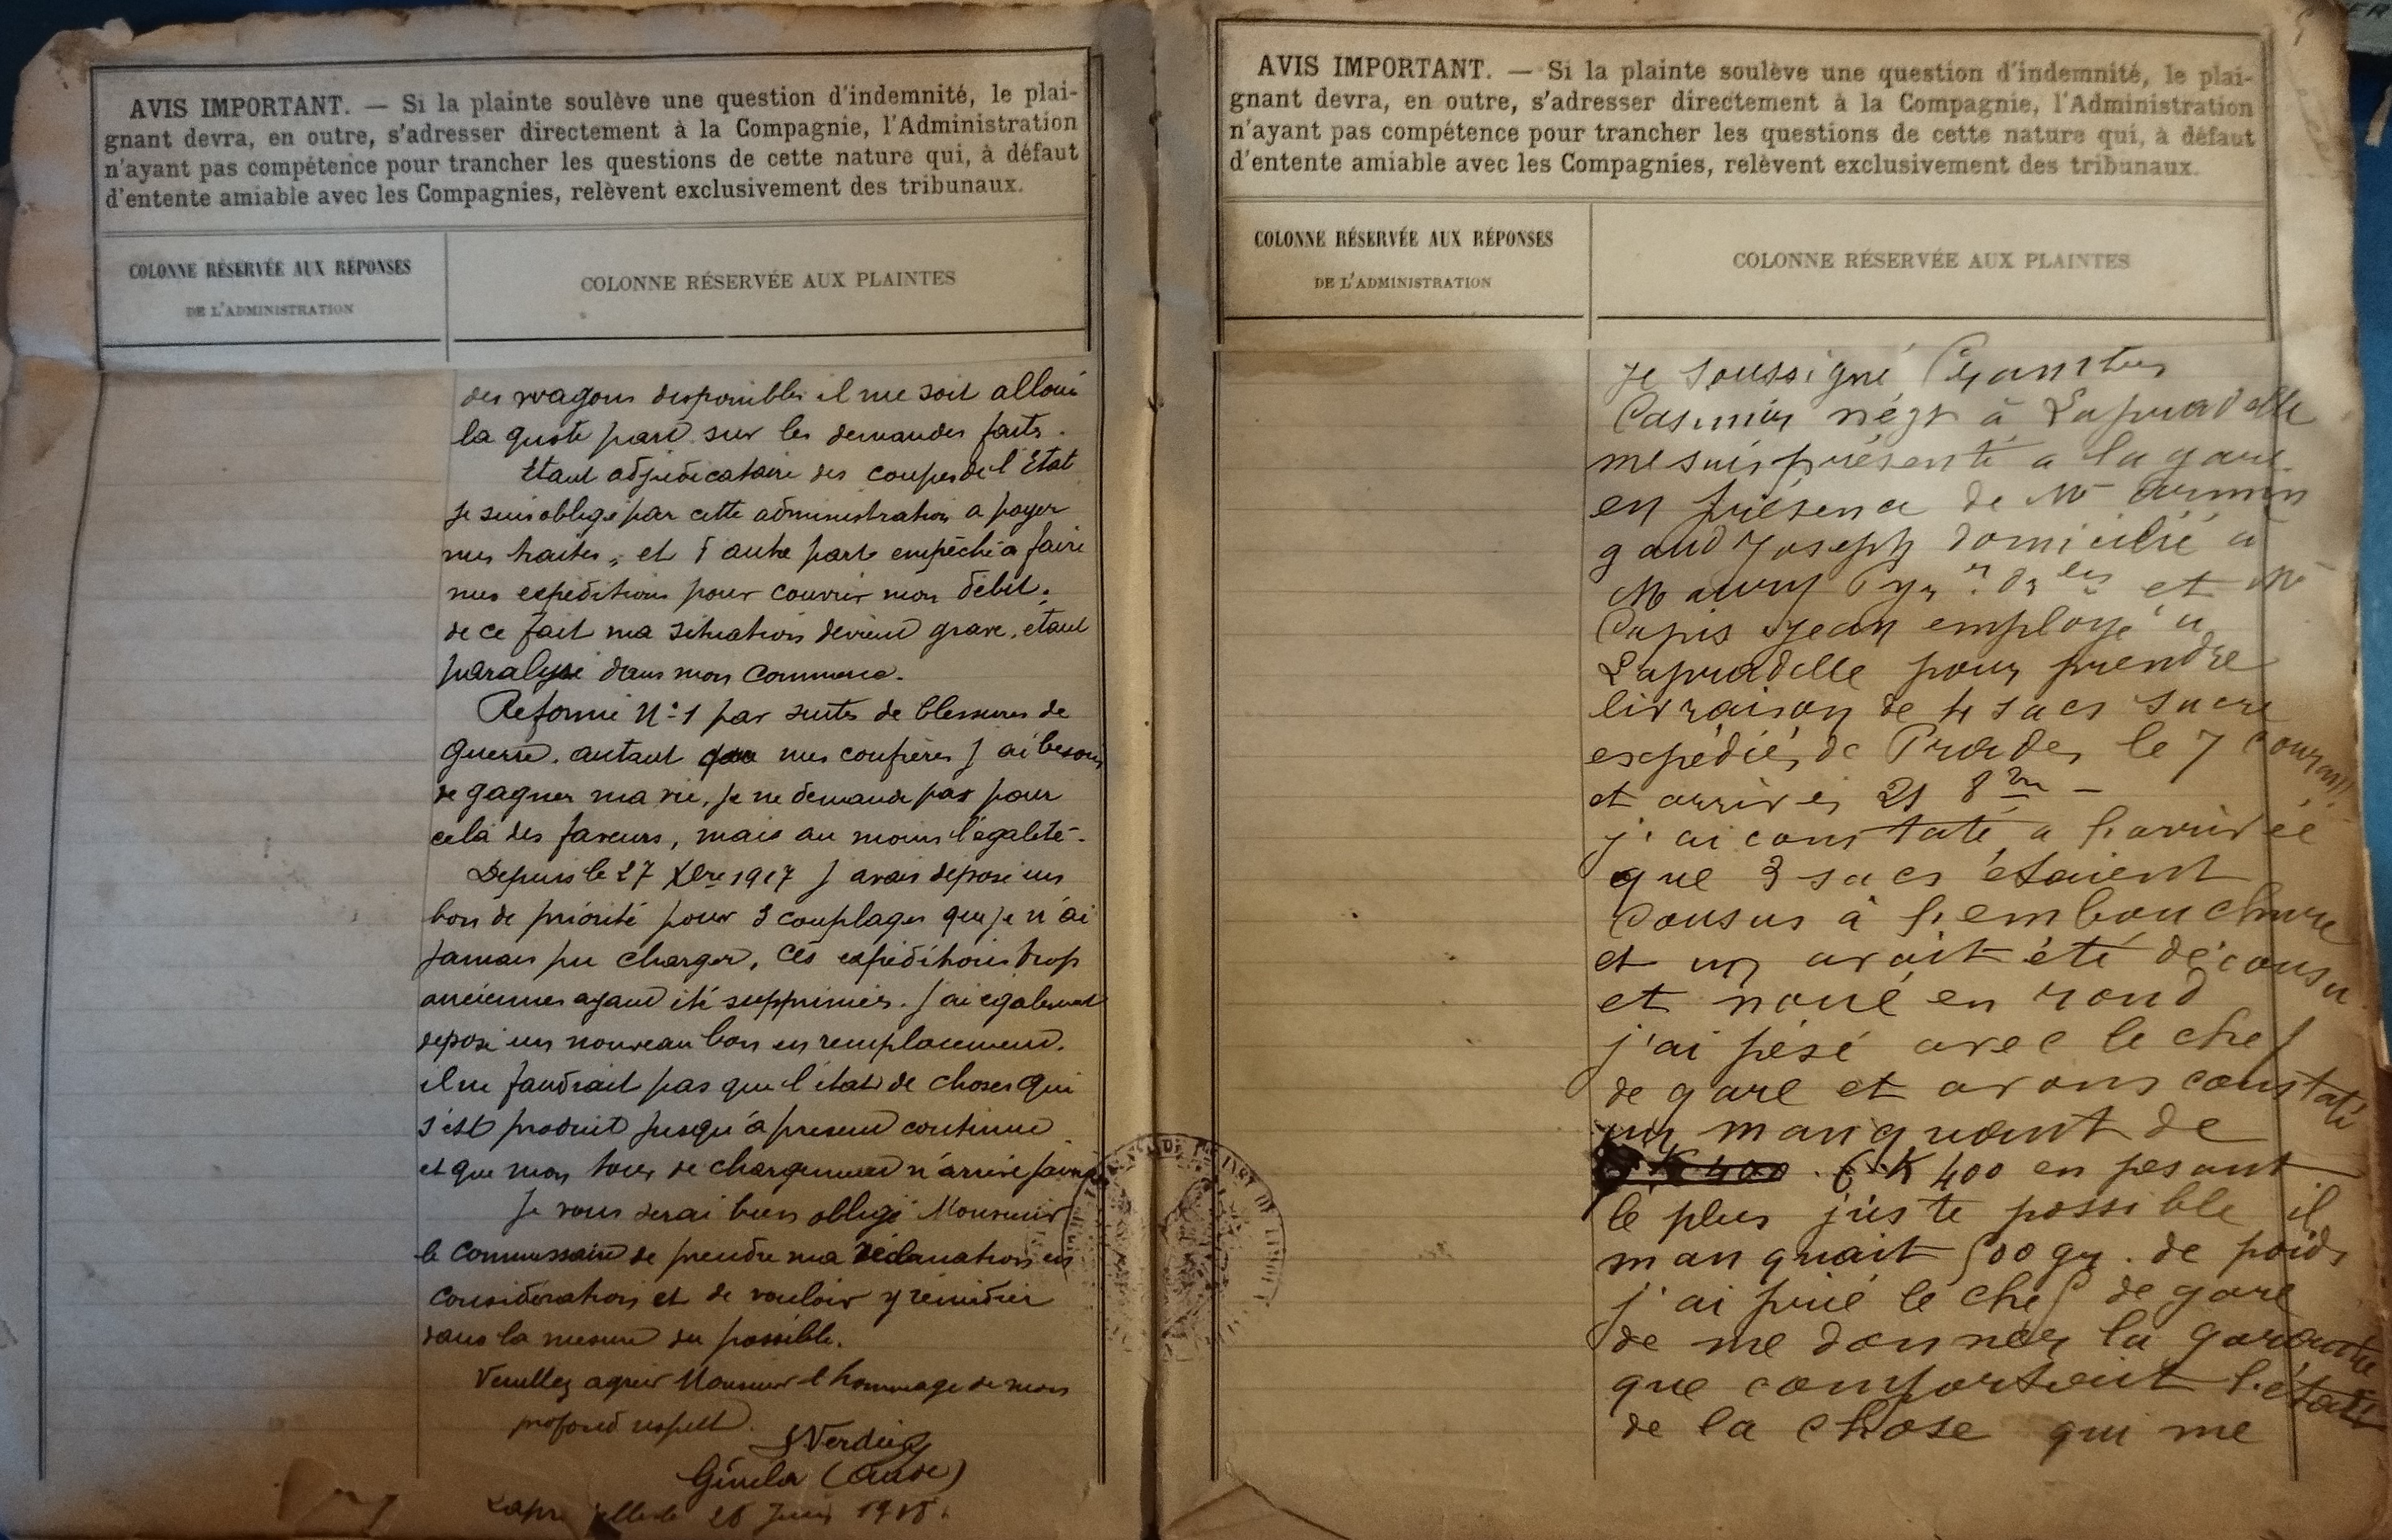 AVIS IMPORTANT. — Si la plainte soulève une question d'indemnité, le plai-
gnant devra, en outre, s'adresser directement à la Compagnie, l'Administration
n'ayant pas compétence pour trancher les questions de cette nature qui, à défaut
d'entente amiable avec les Compagnies, relèvent exclusivement des tribunaux.
COLONNE RÉSERVÉE AUX RÉPONSES
DE L'ADMINISTRATION
COLONNE RÉSERVÉE AUX PLAINTES
des wagons disponibles il me soit alloué
la quote part sur les demandes faites.
Etant adjudicataire des coupes de l'Etat
je suis obligé par cette administration a payer
mes traites, et d'autre part empêché a faire
mes expéditions pour couvrir mon débit.
de ce fait ma situation devient grave, étant
paralysé dans mon commerce.
Reformé N° 1 par suites de blessures de
guerre. autant que mes confrères j'ai besoin
de gagner ma vie, je ne demande pas pour
cela des faveurs, mais au moins l'égalité.
Depuis le 27 Xbre 1917 j'avais déposé un
bon de priorité pour 3 couplages que je n'ai
jamais pu charger, ces expéditions trop
anciennes ayant été supprimées. j'ai également
déposé un nouveau bon en remplacement.
il ne faudrait pas que l'état de choses qui
s'est produit jusqu'à présent continue
et que mon tour de chargement n'arrive jamais
Je vous serai bien obligé Monsieur
le Commissaire de prendre ma réclamation en
considération et de vouloir y remédier
dans la mesure du possible.
Veuillez agréer Monsieur l'hommage de mon
profond respect.
Gincla (Aude)
le 28 Juin 1918.
AVIS IMPORTANT. — Si la plainte soulève une question d'indemnité, le plai-
gnant devra, en outre, s'adresser directement à la Compagnie, l'Administration
n'ayant pas compétence pour trancher les questions de cette nature qui, à défaut
d'entente amiable avec les Compagnies, relèvent exclusivement des tribunaux.
COLONNE RÉSERVÉE AUX RÉPONSES
DE L'ADMINISTRATION
COLONNE RÉSERVÉE AUX PLAINTES
Je soussigné
Casimir négt à Lapradelle
me suis présenté a la gare
en présence de Mr
gaud Joseph domicilié à
Maury et Mr
Jean employé a
Lapradelle pour prendre
livraison de 4 sacs sucre
expédiés de Prades le 7 courant
et arrivés 21 8bre —
j'ai constaté a l'arrivée
que 3 sacs étaient
cousus à l'embouchure
et un avait été décousu
et noué en rond
j'ai pésé avec le chef
de gare et avons constaté
un manquant de
6 K 400 en pesant
le plus juste possible il
manquait 500 gr. de poids
j'ai prié le chef de gare
de me donner la garantie
que comportait l'état
de la chose qui me